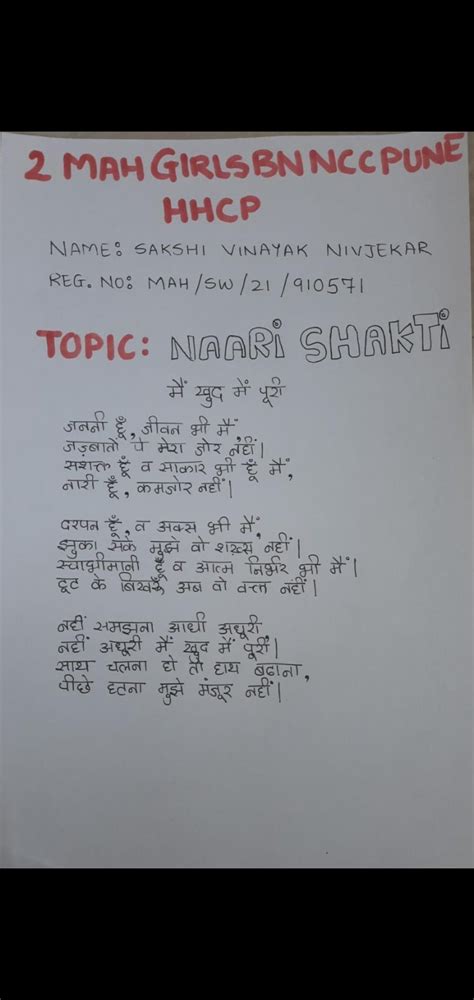 2 MAH GIRLS BN NCC PUNE
HHCP
NAME: SAKSHI VINAYAK NIVJEKAR
REG. NO: MAH/SW/21/910571
TOPIC: NAARI SHAKTI
मैं खुद में पूरी
जननी हूँ, जीवन भी मैं,
जज़्बातो पे मेरा ज़ोर नहीं।
सशक्त हूँ व साकार भी हूँ मैं,
नारी हूँ, कमज़ोर नहीं।
दरपन हूँ, व अक्स भी मैं,
झुका सके मुझे वो शख़्स नहीं।
स्वाभीमानी हूँ व आत्म निर्भर भी मैं।
टूट के बिखरूँ अब वो वक्त नहीं।
नहीं समझना आधी अधूरी,
नहीं अधूरी मैं खुद में पूरी।
साथ चलना हो तो हाथ बढाना,
पीछे हटना मुझे मंजूर नहीं।